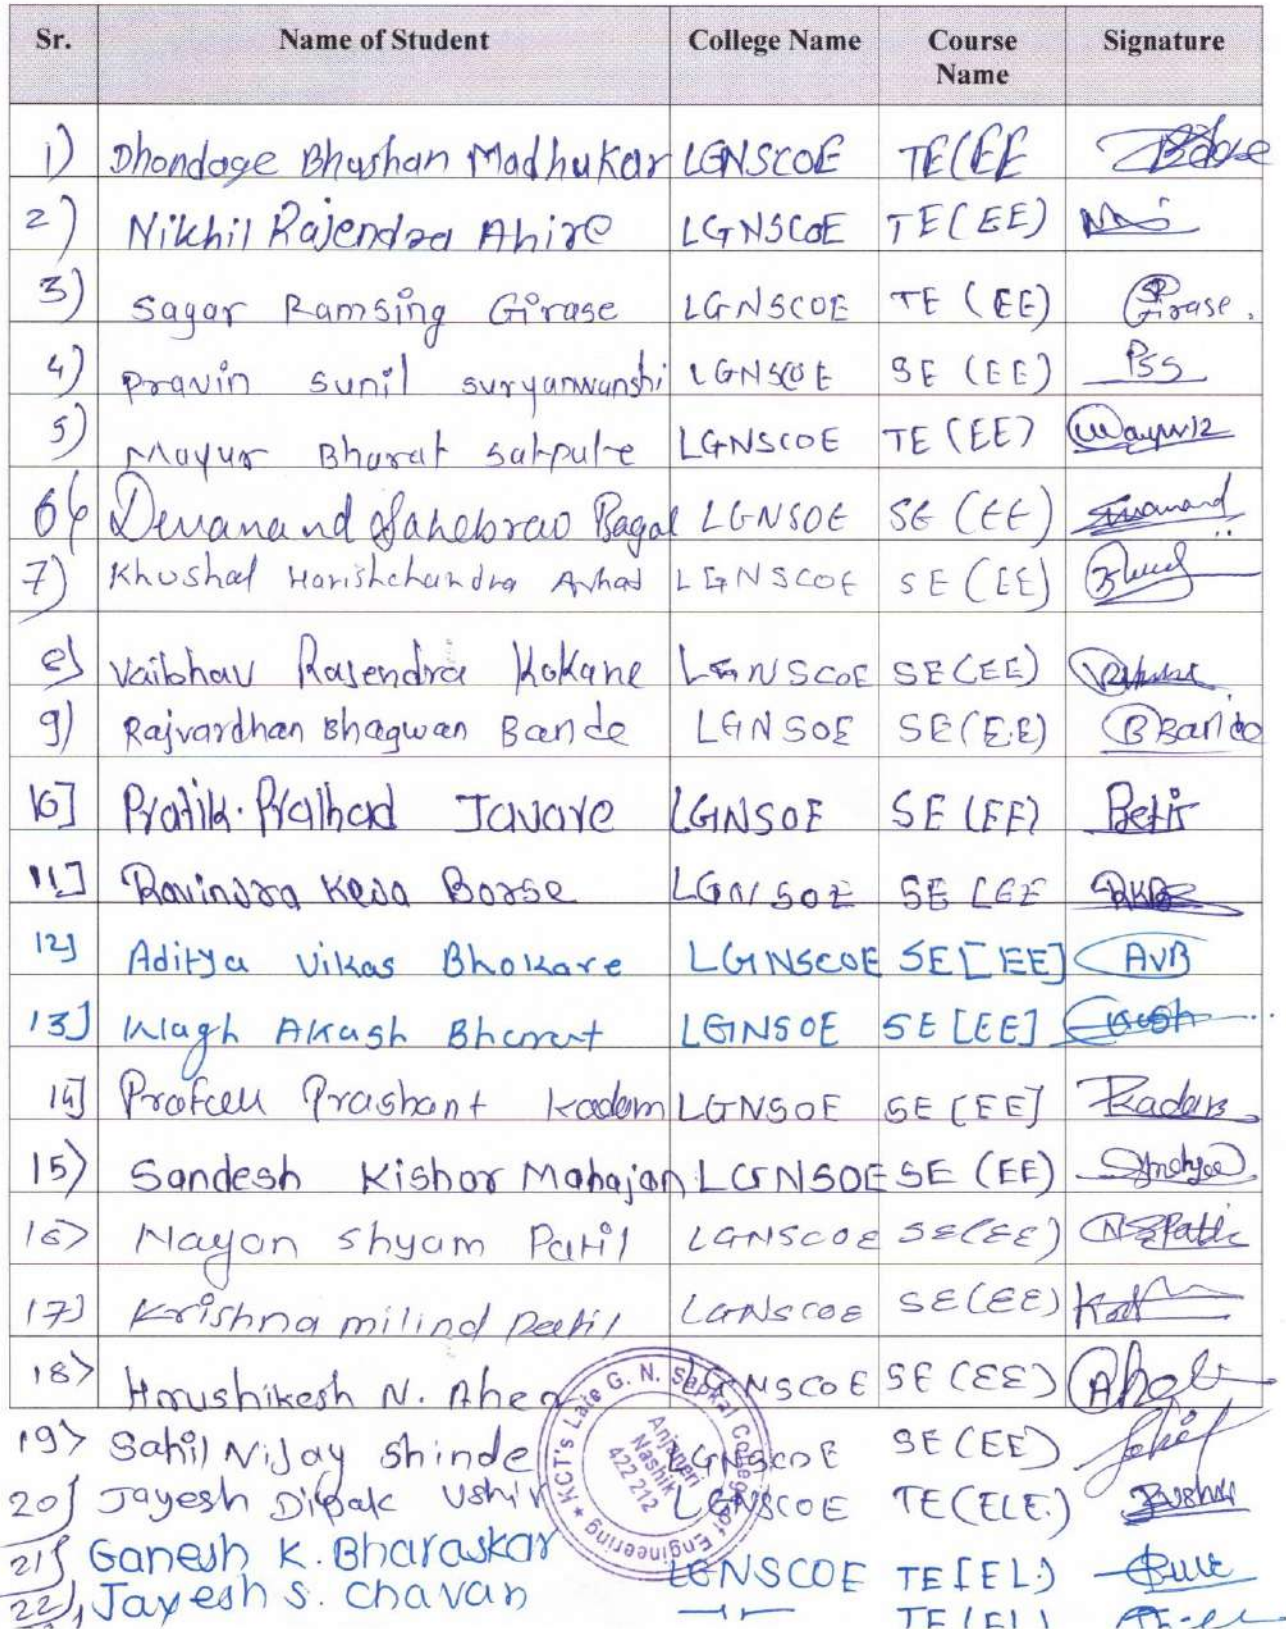 Sr. Name of Student College Name Course Name Signature
1) Dhondage Bhushan Madhukar LGNSCOE TE(EE
2) Nikhil Rajendra Ahire LGNSCOE TE(EE)
3) Sagar Ramsing Girase LGNSCOE TE (EE) Girase.
4) Pravin Sunil Suryanwanshi LGNSCOE SE (EE) PSS
5) Mayur Bharat Satpute LGNSCOE TE (EE)
6) Devanand Sahebrao Bagal LGNSOE SE (EE)
7) Khushal Harishchandra Avhad LGNSCOE SE (EE)
8) Vaibhav Rajendra Kokane LGNSCOE SE(EE)
9) Rajvardhan Bhagwan Bande LGNSOE SE(E.E) BBande
10] Pratik. Pralhad Javare LGNSOE SE (EE)
11] Ravindra Keda Borse LGNSOE SE [EE RKB
12] Aditya Vikas Bhokare LGNSCOE SE[EE] AVB
13] Wagh Akash Bharat LGNSOE SE [EE]
14] Prashant Kadam LGNSOE SE [EE]
15) Sandesh Kishor Mahajan LGNSOE SE (EE)
16) Nayan Shyam Patil LGNSCOE SE(EE) NSPatil
17) Krishna milind Patil LGNSCOE SE(EE)
18) Hrushikesh N. Aher LGNSCOE SE (EE)
19) Sahil Vijay Shinde LGNSCOE SE (EE)
20) Jayesh Dipak Ushir LGNSCOE TE(ELE.)
21) Ganesh K. Bharaskar LGNSCOE TE[EL.)
22) Jayesh S. Chavan —11— TE(EL)
KCT's Late G. N. Sapkal College of Engineering ★
Anjaneri
Nashik
422 212